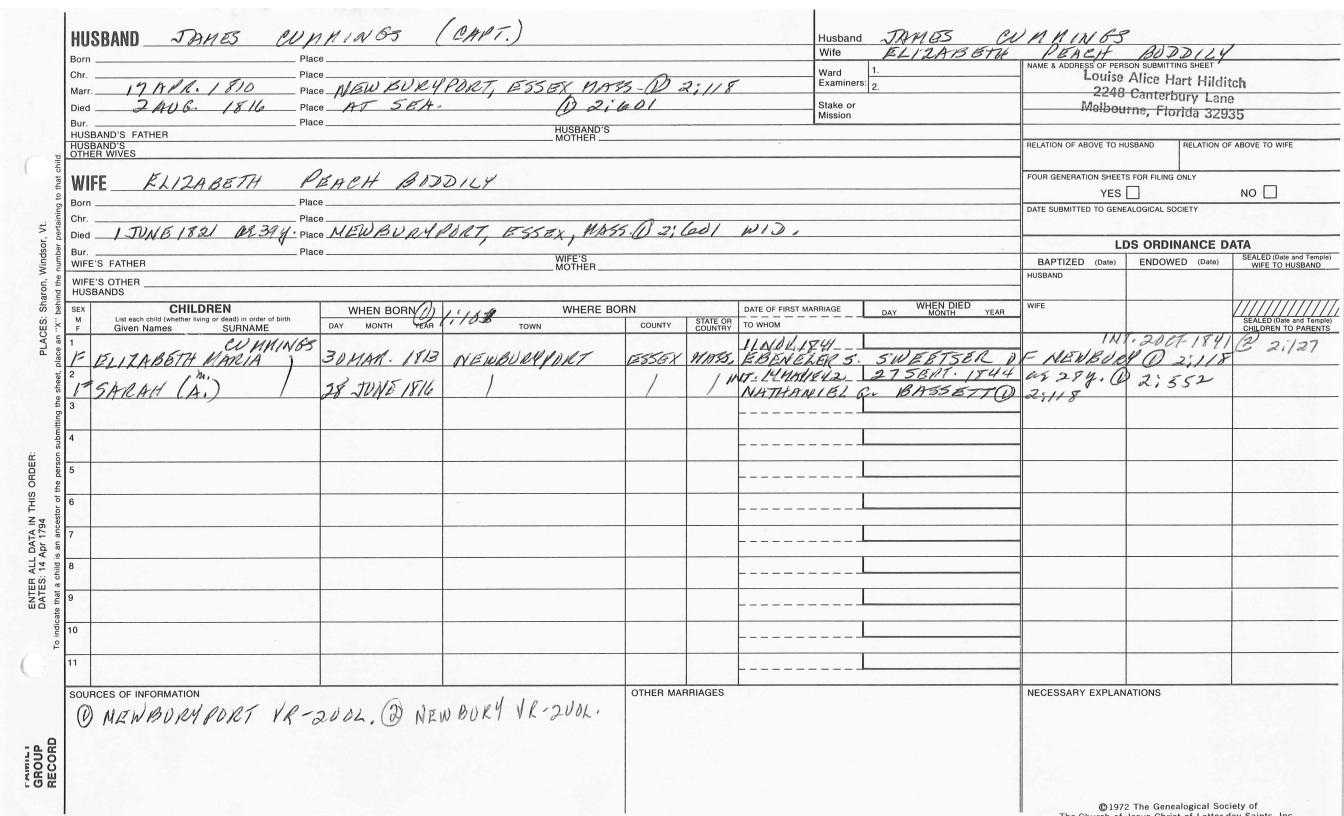 HUSBAND JAMES CUMMINGS (CAPT.)
Born Place
Chr. Place
Marr. 17 APR. 1810 Place NEWBURYPORT, ESSEX MASS. ① 2:118
Died 2 AUG. 1816 Place AT SEA. ① 2:601
Bur. Place
HUSBAND'S FATHER HUSBAND'S MOTHER
HUSBAND'S OTHER WIVES
Husband JAMES CUMMINGS
Wife ELIZABETH PEACH BODDILY
Ward Examiners: 1.
2.
Stake or Mission
NAME & ADDRESS OF PERSON SUBMITTING SHEET
Louise Alice Hart Hilditch
2248 Canterbury Lane
Melbourne, Florida 32935
RELATION OF ABOVE TO HUSBAND RELATION OF ABOVE TO WIFE
FOUR GENERATION SHEETS FOR FILING ONLY
YES NO
DATE SUBMITTED TO GENEALOGICAL SOCIETY
WIFE ELIZABETH PEACH BODDILY
Born Place
Chr. Place
Died 1 JUNE 1821 ae 39y. Place NEWBURYPORT, ESSEX, MASS. ① 2:601 WID.
Bur. Place
WIFE'S FATHER WIFE'S MOTHER
WIFE'S OTHER HUSBANDS
LDS ORDINANCE DATA
BAPTIZED (Date) ENDOWED (Date) SEALED (Date and Temple) WIFE TO HUSBAND
HUSBAND
WIFE
SEALED (Date and Temple) CHILDREN TO PARENTS
SEX M F
CHILDREN
List each child (whether living or dead) in order of birth
Given Names SURNAME
WHEN BORN ① 1:103
DAY MONTH YEAR
WHERE BORN
TOWN COUNTY STATE OR COUNTRY
DATE OF FIRST MARRIAGE
TO WHOM
WHEN DIED
DAY MONTH YEAR
1 CUMMINGS 11 NOV. 1841 INT. 2 OCT 1841 ② 2:127
F ELIZABETH MARIA 30 MAR. 1813 NEWBURYPORT ESSEX MASS. EBENEZER S. SWEETSER OF NEWBURY ① 2:118
2 m. INT. 14 MAY 1842 27 SEPT. 1844 ae 28y. ① 2:552
F SARAH (A.) 28 JUNE 1816 NATHANIEL G. BASSETT ① 2:118
3
4
5
6
7
8
9
10
11
SOURCES OF INFORMATION
① NEWBURYPORT VR-2VOL. ② NEWBURY VR-2VOL.
OTHER MARRIAGES
NECESSARY EXPLANATIONS
©1972 The Genealogical Society of
The Church of Jesus Christ of Latter-day Saints, Inc.
ENTER ALL DATA IN THIS ORDER:
DATES: 14 Apr 1794
PLACES: Sharon, Windsor, Vt.
To indicate that a child is an ancestor of the person submitting the sheet, place an "X" behind the number pertaining to that child.
FAMILY
GROUP
RECORD